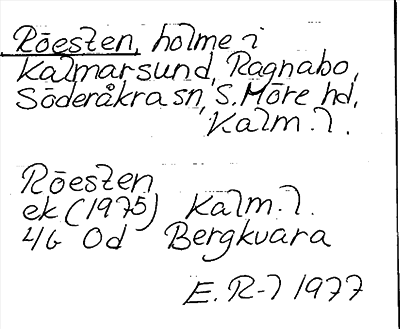 Röesten, holme i
Kalmarsund, Ragnabo,
Söderåkra sn, S. Möre hd,
Kalm. l.
Röesten
ek (1975) Kalm. l.
4G 0d Bergkvara
E. R-l 1977